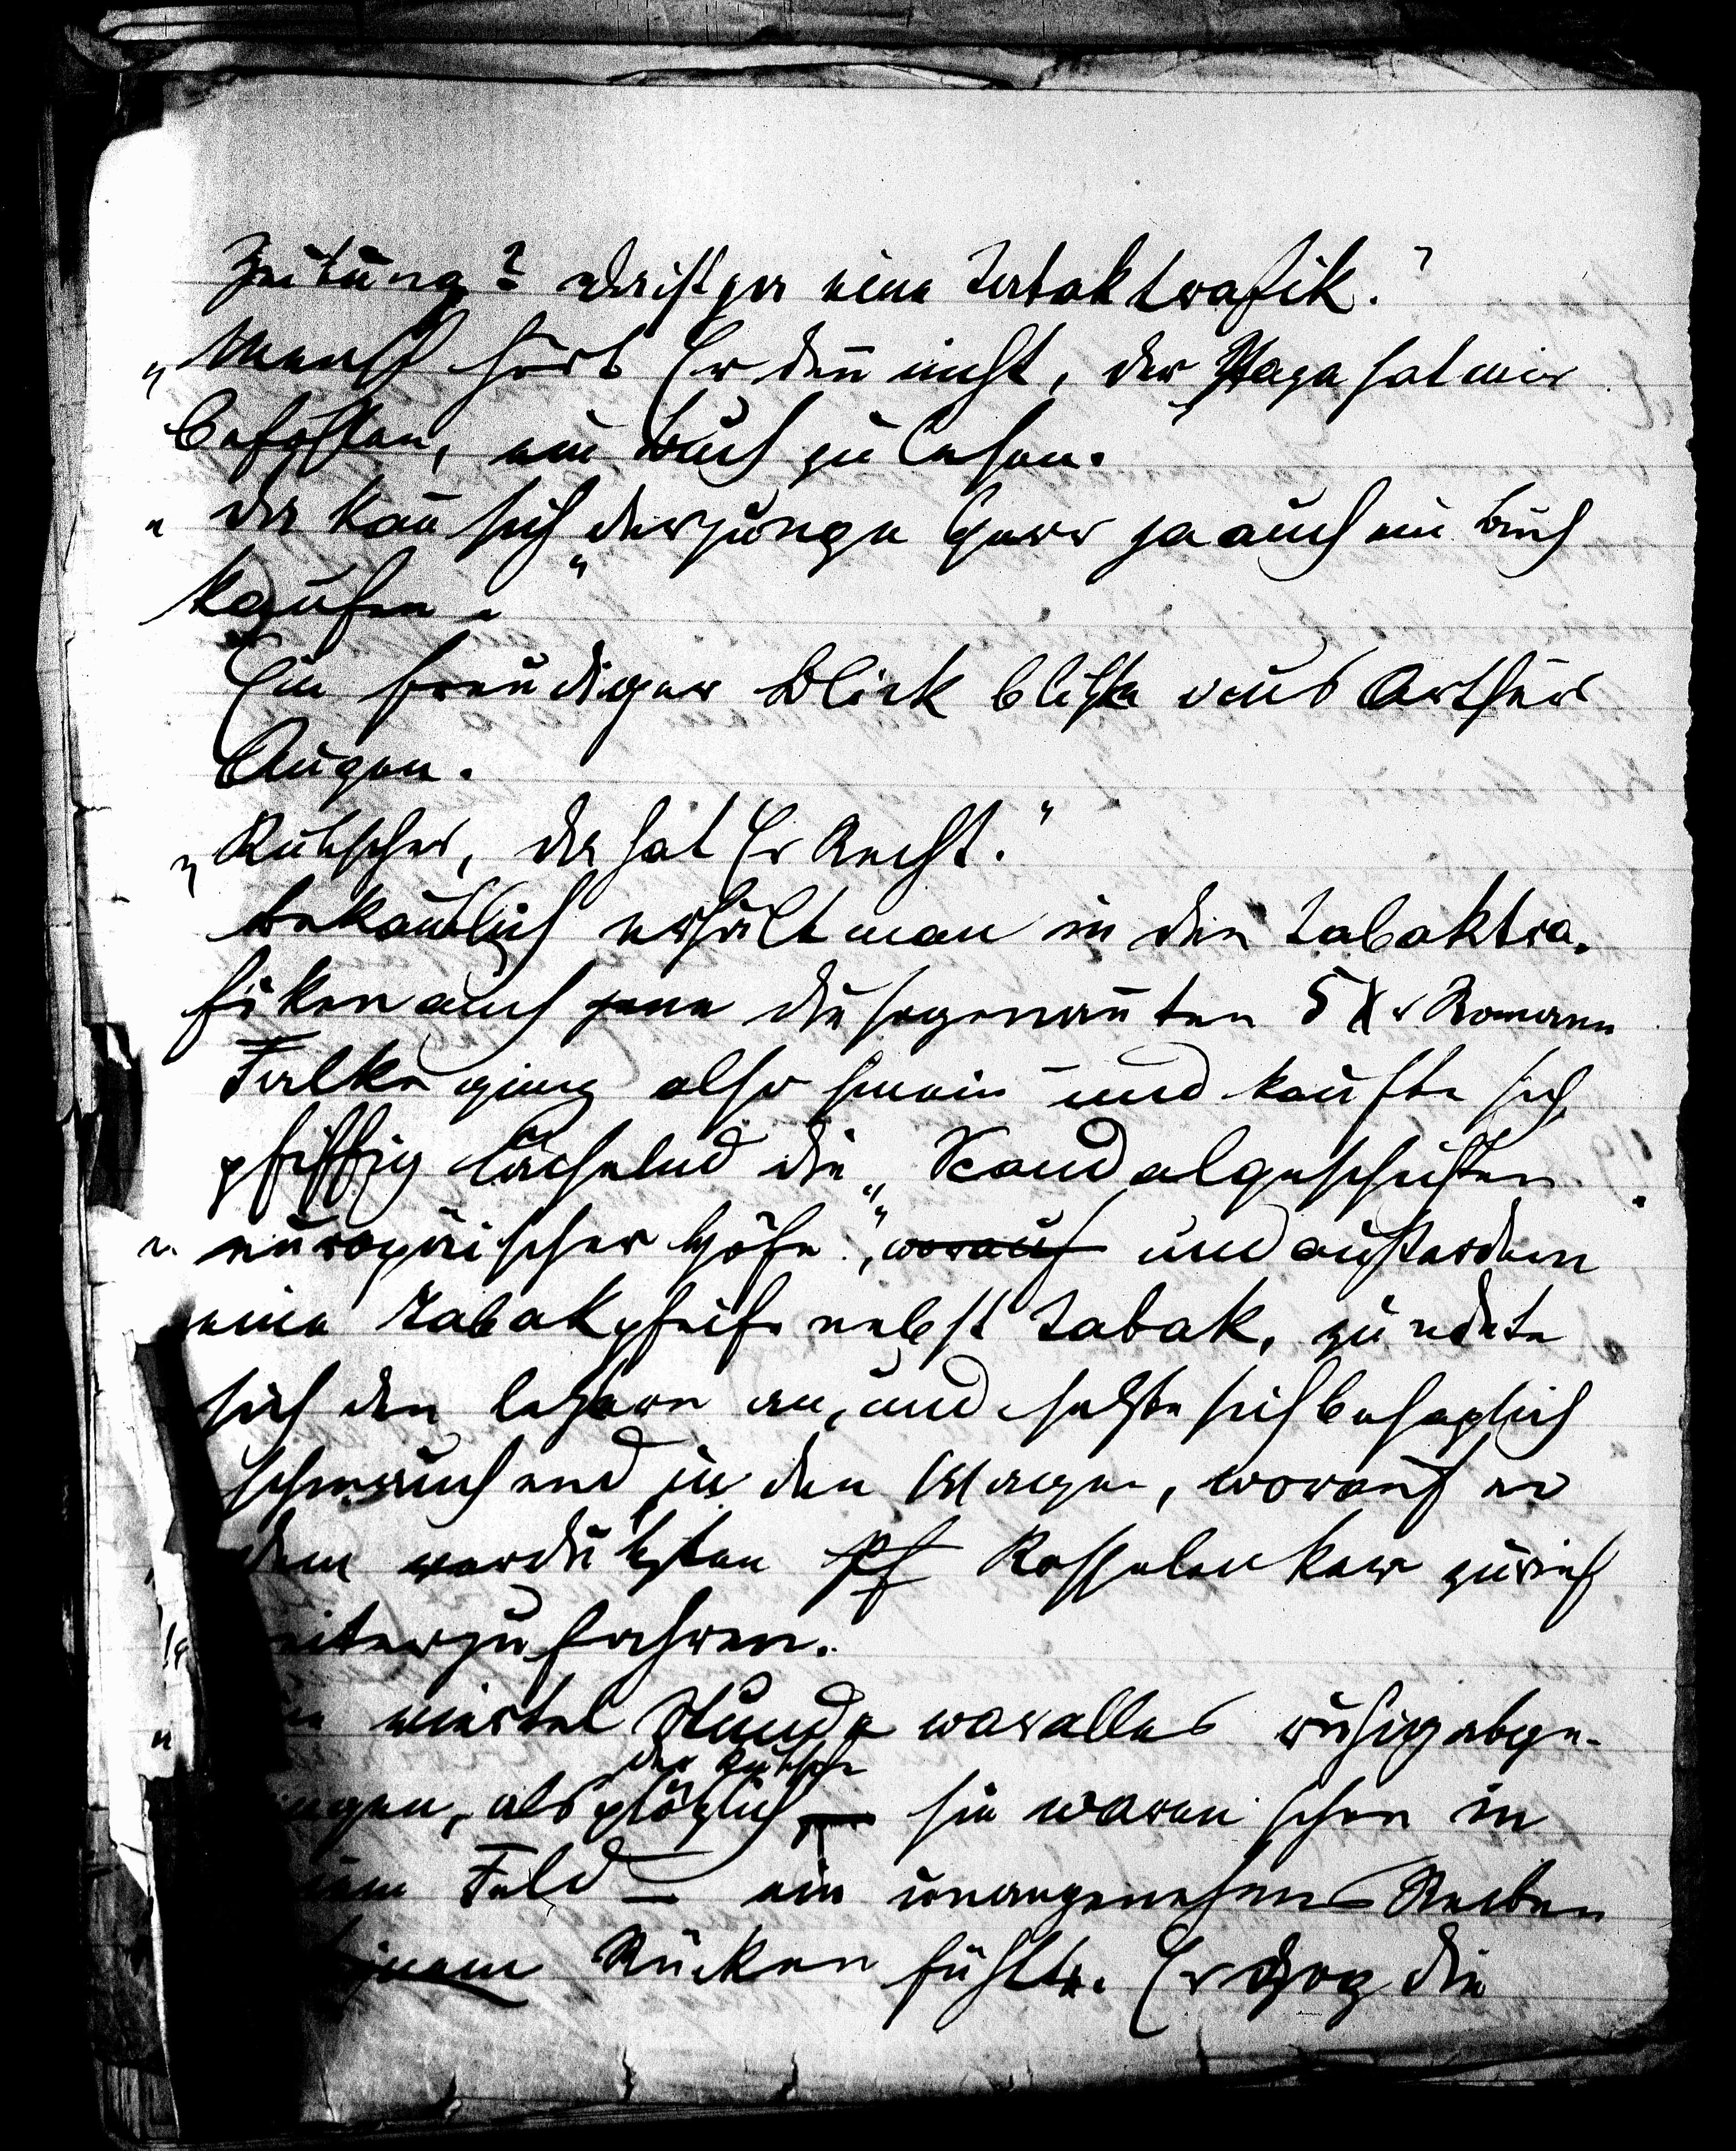 Zeitung? Da ist ja eine Tabaktrafik.?
„Mensch hört Er deñ nicht, der Papa hat mir
befohlen, ein Buch zu lesen.
„Da kañ sich „der junge Herr ja auch ein Buch
kaufen.
Ein freudiger Blick blitzte aus Arthur
Augen.
„Kutscher, da hat Er Recht."
Bekañtlich erhält man in den Tabaktra-
fiken auch jene die sogenañten 5 X r Romane
Falke ging also hinein und kaufte sich
pfiffig lächelnd die „Skandalgeschichten
europäischer Höfe", worauf und außerdem
eine Tabakpfeife nebst Tabak, zündete
sich den letztern an, und setzte sich behaglich
schmauchend in den Wagen, worauf er
dem verdutzten Pf Rosselenker zurief
eiterzufahren.
viertel Stunde war alles ruhig abge-
angen, als plötzlich der Kutsche – sie waren schon in
Feld – ein unangenehmes Reiben
Rücken fühlte. Er zog die